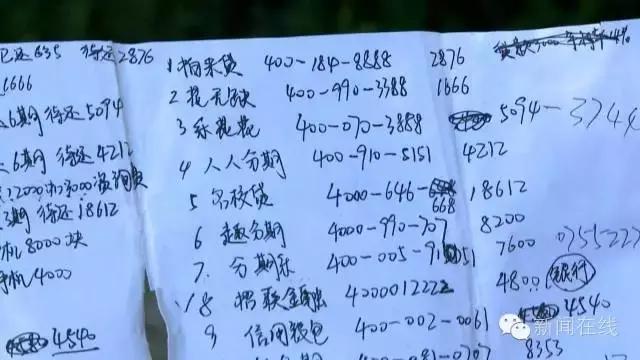 已还635 待还2876
1666
6期 待还5094
6期 待还4212
待还18612
机8000块
手机4000
4540
1 拍来贷 400-184-8888 2876
2 花无缺 400-990-3388 1666
3 乐花花 400-070-3888 5094-3744
4 人人分期 400-910-5151 4212
5 名校贷 4000-646-668 18612
6 趣分期 4000-990-707 8200
7. 分期乐 400-005-9151 7600 0755222
8 招联金融 4000012222 4800 银行
9 信用钱包 400-002-0061 4540
8353
新闻在线